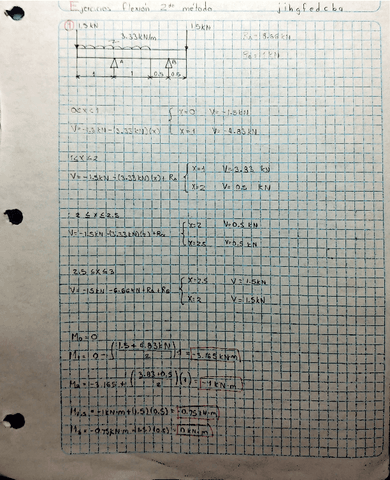 Ejercicios flexión 2do método jihgfedcba
① 1.5kN 1.5kN
3.33kN/m
A B
1 1 0.5 0.5
0≤x≤1 { x=0 V=-1.5kN
V=-1.5kN-(3.33kN)(x) { x=1 V=-4.83kN
1≤x≤2
V=-1.5kN-(3.33kN)(x)+RA { x=1 V=3.83 kN
x=2 V=0.5 kN
2≤x≤2.5
V=-1.5kN-(3.33kN)(x)+RA { x=2 V=0.5kN
x=2.5 V=0.5kN
2.5≤x≤3
V=-1.5kN-6.66kN+RA+RB { x=2.5 V=1.5kN
x=2 V=1.5kN
M0=0
M1=0-((1.5+4.83kN)/2)1=-3.165kN·m
M2=-3.165+((3.83+0.5)/2)(1)=-1kN·m
=-1kN·m+(.5)(0.5)=-0.75kN·m
=0kN·m